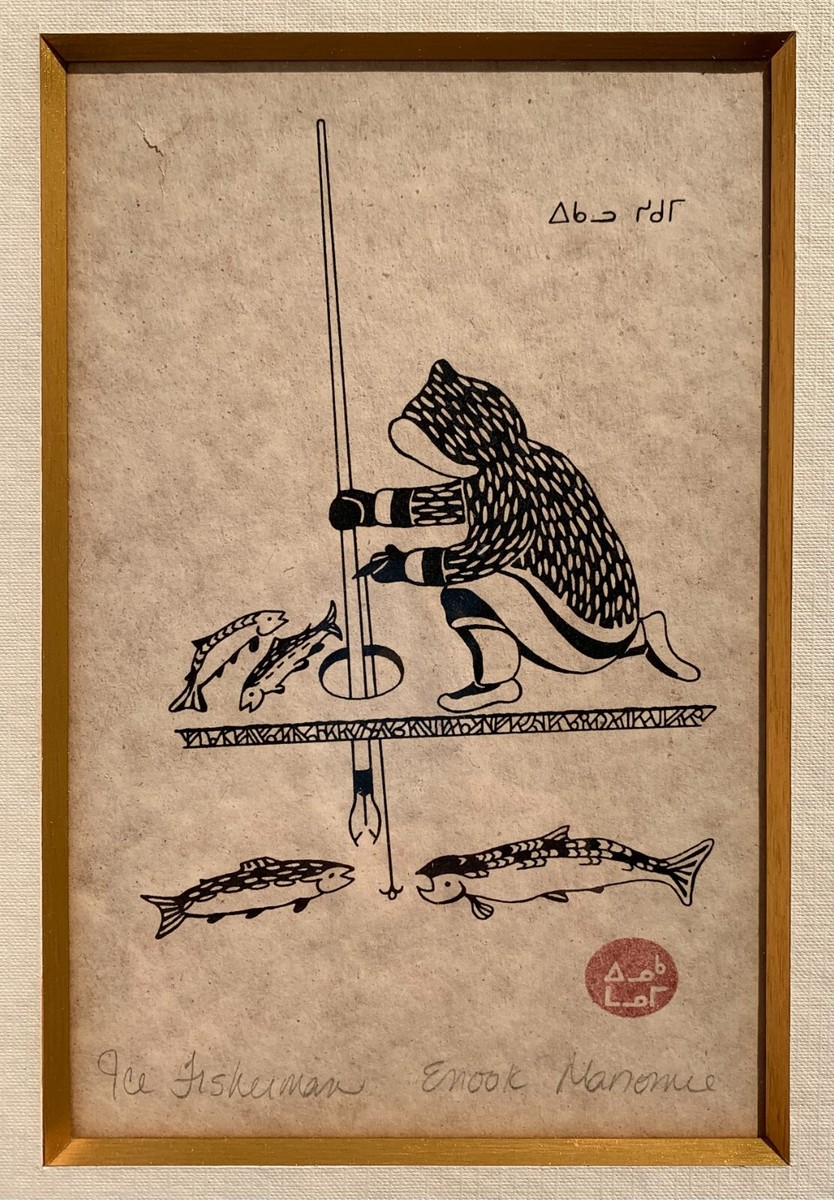 ᐃᑲᓗ ᓯᑯᒥ
ᐃᓄᒃ
ᒪᓄᒥ
Ice Fisherman Enook Manomie